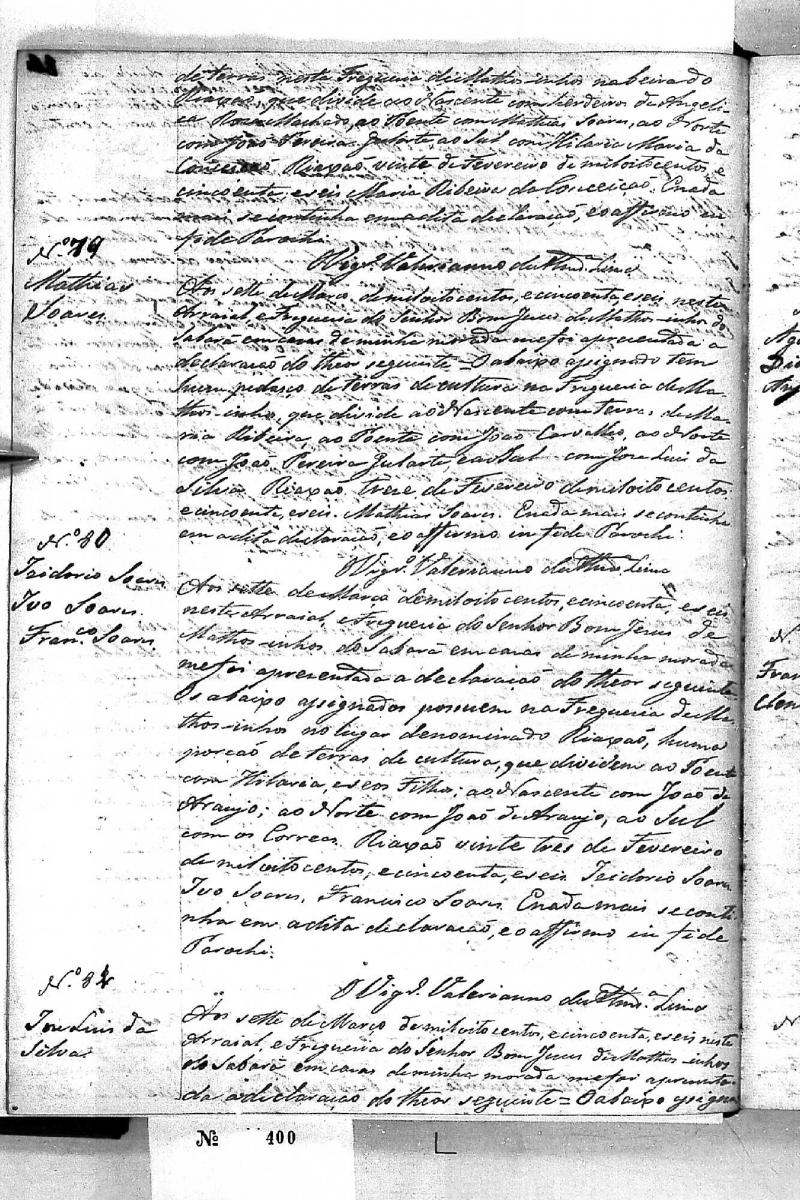 de terras nesta Fregueria de Mathosinhos na beira do
Riaxão, que divide ao Nascente com herdeiros de Angeli-
ca Rosa Machado, ao Poente com Mathias Soares, ao Norte
com João Pereira Gularte, ao Sul com Hilaria Maria da
Conceicão. Riaxão vinte de Fevereiro de mil oito centos, e
cincoenta, e seis Maria Ribeira da Conceição. E nada
mais se continha em a dita declaração, e o affirmo in
fide Parochi.
O Vigr.º Valerianno de Lima
Nº 79
Mathias
Soares
Aos sette de Março de mil oito centos, e cincoenta, e seis neste
Arraial, e Fregueria do Senhor Bom Jesus de Mathosinhos do
Sabará em casas de minha morada me foi apresentada a
declaração do theor seguinte = O abaixo assignado tem
hum pedaço de terras de cultura na Fregueria de Ma-
thosinhos, que divide ao Nascente com terras de Ma-
ria Ribeira, ao Poente com João Carvalho, ao Norte
com João Pereira Gularte, e ao Sul com Jose Luis da
Silva. Riaxão trese de Fevereiro de mil oito centos
e cincoenta, e seis. Mathias Soares. E nada mais se continha
em a dita declaração, e o affirmo in fide Parochi
O Vigr.º Valerianno de Lima
N.º 80
Isidorio Soares
Ivo Soares
Fran.co Soares
Aos sette de Março de mil oito centos, e cincoenta, e seis
neste Arraial, e Fregueria do Senhor Bom Jesus de
Mathosinhos do Sabará em casas de minha morada
me foi apresentada a declaração do theor seguinte
Os abaixo assignados possuem na Fregueria de Ma-
thosinhos no lugar denominado Riaxão, huma
porcão de terras de cultura, que dividem ao Poente
com Hilaria, e seos Filhos; ao Nascente com João de
Araujo; ao Norte com João de Araujo, ao Sul
com os Correas. Riaxão vinte tres de Fevereiro
de mil oito centos, e cincoenta, e seis Isidorio Soares
Ivo Soares, Francisco Soares. E nada mais se conti-
nha em a dita declaração, e o affirmo in fide
Parochi.
O Vigr.º Valerianno de Lima
N.º 81
Jose Luis da
Silva
Aos sette de Março de mil oito centos, e cincoenta, e seis neste
Arraial, e Fregueria do Senhor Bom Jesus de Mathosinhos
do Sabará em casas de minha morada me foi apresenta-
da a declaração do theor seguinte = O abaixo assigna
Nº 400